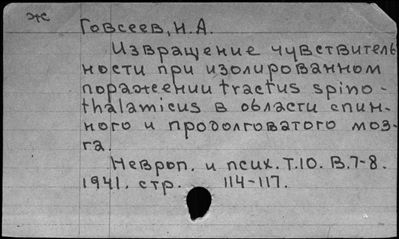 ЭС
Говсеев, Н.А.
Извращение чувствитель
ности при изолированном
поражеении tractus spino-
thalamicus в области спин-
ного и продолговатого моз-
га.
Невроп. и псих. Т.10. В.7-8.
1941. стр. 114-117.